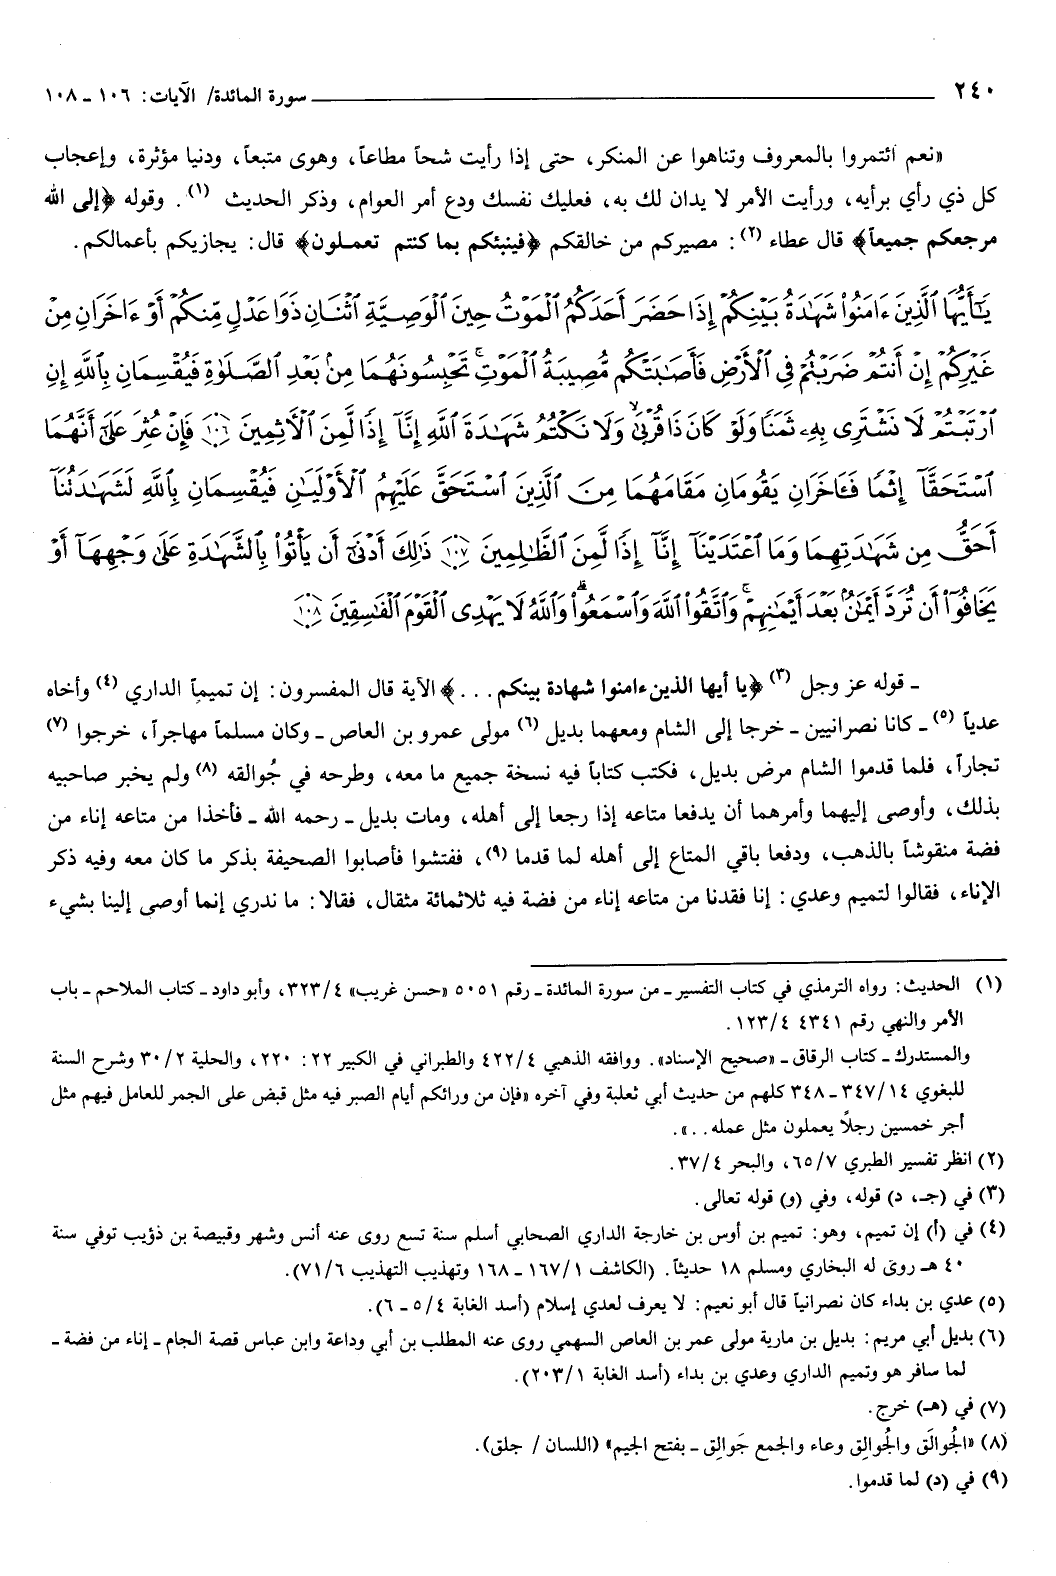 ٢٤٠ سورة المائدة/ الآيات: ١٠٦ ـ ١٠٨
«نعم ائتمروا بالمعروف وتناهوا عن المنكر، حتى إذا رأيت شحاً مطاعاً، وهوى متبعاً، ودنيا مؤثرة، وإعجاب
كل ذي رأي برأيه، ورأيت الأمر لا يدان لك به، فعليك نفسك ودع أمر العوام، وذكر الحديث (١). وقوله ﴿إلى الله
مرجعكم جميعاً﴾ قال عطاء (٢): مصيركم من خالقكم ﴿فينبئكم بما كنتم تعملون﴾ قال: يجازيكم بأعمالكم.
يَٰٓأَيُّهَا ٱلَّذِينَ ءَامَنُواْ شَهَٰدَةُ بَيْنِكُمْ إِذَا حَضَرَ أَحَدَكُمُ ٱلْمَوْتُ حِينَ ٱلْوَصِيَّةِ ٱثْنَانِ ذَوَا عَدْلٍ مِّنكُمْ أَوْ ءَاخَرَانِ مِنْ
غَيْرِكُمْ إِنْ أَنتُمْ ضَرَبْتُمْ فِى ٱلْأَرْضِ فَأَصَٰبَتْكُم مُّصِيبَةُ ٱلْمَوْتِ ۚ تَحْبِسُونَهُمَا مِنۢ بَعْدِ ٱلصَّلَوٰةِ فَيُقْسِمَانِ بِٱللَّهِ إِنِ
ٱرْتَبْتُمْ لَا نَشْتَرِى بِهِۦ ثَمَنًا وَلَوْ كَانَ ذَا قُرْبَىٰ ۙ وَلَا نَكْتُمُ شَهَٰدَةَ ٱللَّهِ إِنَّآ إِذًا لَّمِنَ ٱلْأَثِمِينَ ١٠٦ فَإِنْ عُثِرَ عَلَىٰٓ أَنَّهُمَا
ٱسْتَحَقَّآ إِثْمًا فَـَٔاخَرَانِ يَقُومَانِ مَقَامَهُمَا مِنَ ٱلَّذِينَ ٱسْتَحَقَّ عَلَيْهِمُ ٱلْأَوْلَيَٰنِ فَيُقْسِمَانِ بِٱللَّهِ لَشَهَٰدَتُنَآ
أَحَقُّ مِن شَهَٰدَتِهِمَا وَمَا ٱعْتَدَيْنَآ إِنَّآ إِذًا لَّمِنَ ٱلظَّٰلِمِينَ ١٠٧ ذَٰلِكَ أَدْنَىٰٓ أَن يَأْتُواْ بِٱلشَّهَٰدَةِ عَلَىٰ وَجْهِهَآ أَوْ
يَخَافُوٓاْ أَن تُرَدَّ أَيْمَٰنٌۢ بَعْدَ أَيْمَٰنِهِمْ ۗ وَٱتَّقُواْ ٱللَّهَ وَٱسْمَعُواْ ۗ وَٱللَّهُ لَا يَهْدِى ٱلْقَوْمَ ٱلْفَٰسِقِينَ ١٠٨
ـ قوله عز وجل (٣) ﴿يا أيها الذين ءامنوا شهادة بينكم ...﴾ الآية قال المفسرون: إن تميماً الداري (٤) وأخاه
عدياً (٥) ـ كانا نصرانيين ـ خرجا إلى الشام ومعهما بديل (٦) مولى عمرو بن العاص ـ وكان مسلماً مهاجراً، خرجوا (٧)
تجاراً، فلما قدموا الشام مرض بديل، فكتب كتاباً فيه نسخة جميع ما معه، وطرحه في جُوالقه (٨) ولم يخبر صاحبيه
بذلك، وأوصى إليهما وأمرهما أن يدفعا متاعه إذا رجعا إلى أهله، ومات بديل ـ رحمه الله ـ فأخذا من متاعه إناء من
فضة منقوشاً بالذهب، ودفعا باقي المتاع إلى أهله لما قدما (٩)، ففتشوا فأصابوا الصحيفة بذكر ما كان معه وفيه ذكر
الإناء، فقالوا لتميم وعدي: إنا فقدنا من متاعه إناء من فضة فيه ثلاثمائة مثقال، فقالا: ما ندري إنما أوصى إلينا بشيء
(١) الحديث: رواه الترمذي في كتاب التفسير ـ من سورة المائدة ـ رقم ٥٠٥١ «حسن غريب» ٣٢٣/٤، وأبو داود ـ كتاب الملاحم ـ باب
الأمر والنهي رقم ٤٣٤١ ١٢٣/٤.
والمستدرك ـ كتاب الرقاق ـ «صحيح الإسناد». ووافقه الذهبي ٤٢٢/٤ والطبراني في الكبير ٢٢: ٢٢٠، والحلية ٣٠/٢ وشرح السنة
للبغوي ٣٤٧/١٤ ـ ٣٤٨ كلهم من حديث أبي ثعلبة وفي آخره «فإن من ورائكم أيام الصبر فيه مثل قبض على الجمر للعامل فيهم مثل
أجر خمسين رجلاً يعملون مثل عمله..».
(٢) انظر تفسير الطبري ٦٥/٧، والبحر ٣٧/٤.
(٣) في (جـ، د) قوله، وفي (و) قوله تعالى.
(٤) في (أ) إن تميم، وهو: تميم بن أوس بن خارجة الداري الصحابي أسلم سنة تسع روى عنه أنس وشهر وقبيصة بن ذؤيب توفي سنة
٤٠ هـ روى له البخاري ومسلم ١٨ حديثاً. (الكاشف ١٦٧/١ ـ ١٦٨ وتهذيب التهذيب ٧١/٦).
(٥) عدي بن بداء كان نصرانياً قال أبو نعيم: لا يعرف لعدي إسلام (أسد الغابة ٥/٤ ـ ٦).
(٦) بديل أبي مريم: بديل بن مارية مولى عمر بن العاص السهمي روى عنه المطلب بن أبي وداعة وابن عباس قصة الجام ـ إناء من فضة ـ
لما سافر هو وتميم الداري وعدي بن بداء (أسد الغابة ٢٠٣/١).
(٧) في (هـ) خرج.
(٨) «الجُوالَق والجُوالِق وعاء والجمع جَوالِق ـ بفتح الجيم» (اللسان / جلق).
(٩) في (د) لما قدموا.